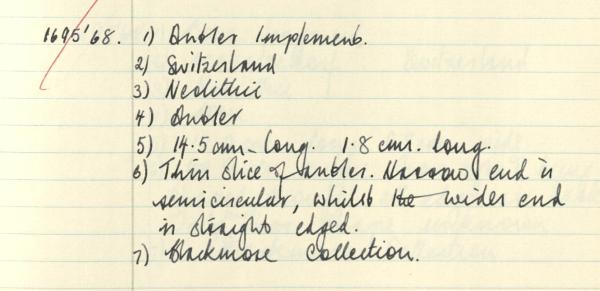 1695'68. 1) Antler Implement.
2) Switzerland
3) Neolithic
4) Antler
5) 14.5 cms-long. 1.8 cms. long.
6) Thin slice of antler. Narrow end is
semicircular, whilst the wider end
is straight edged.
7) Blackmore Collection.